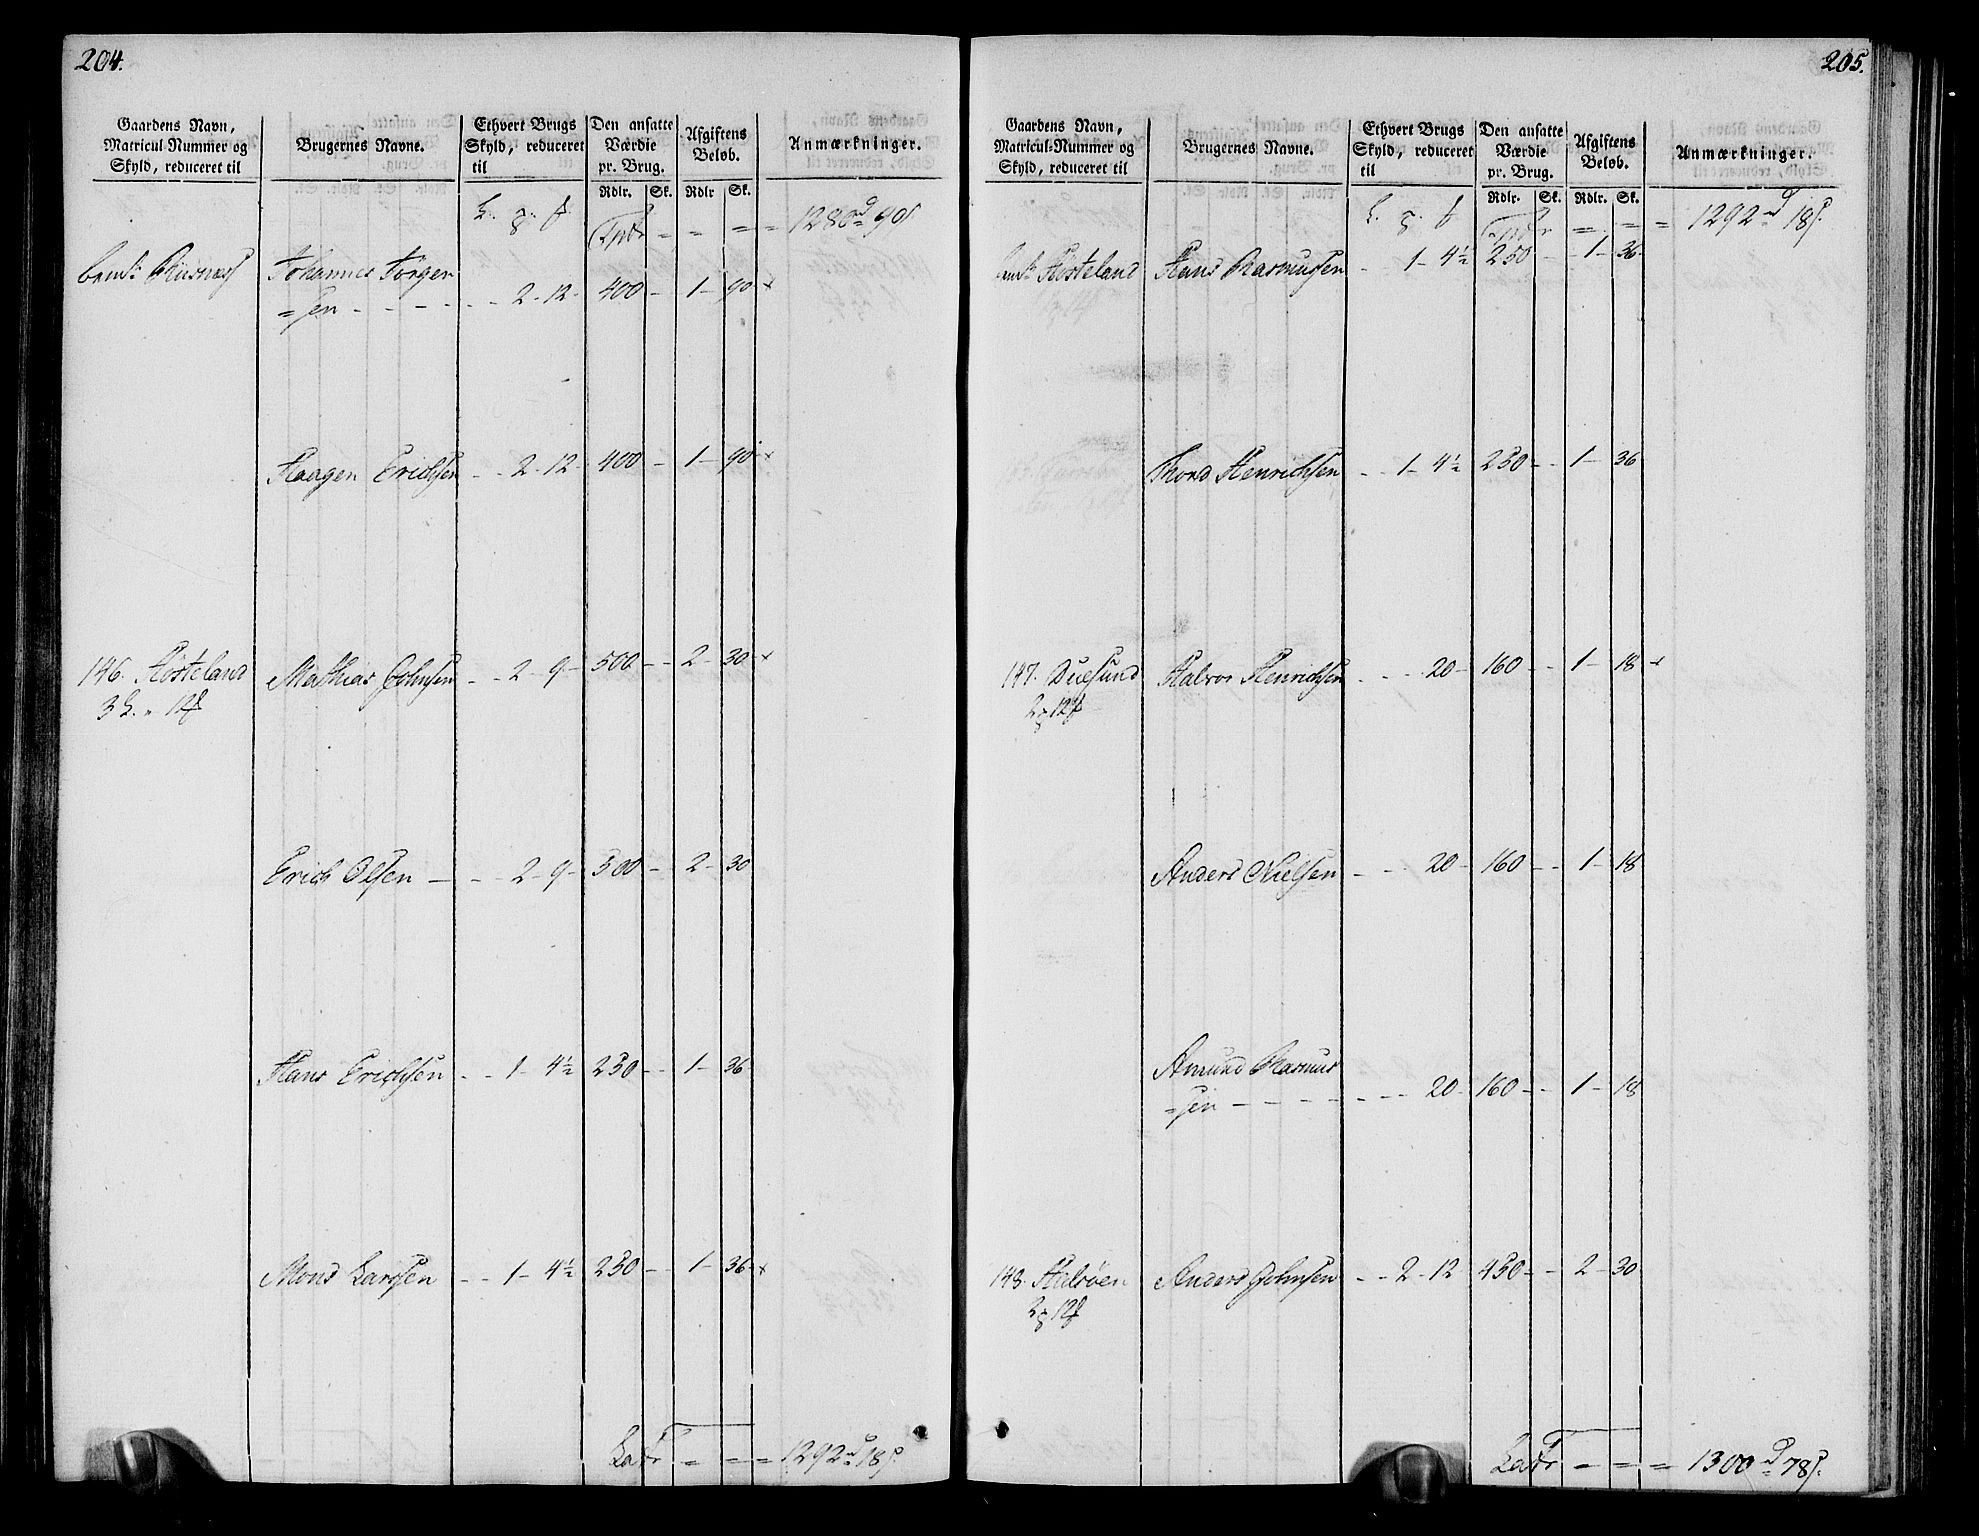 204.
Gaardens Navn, Matricul-Nummer og Skyld, reduceret til
Brugernes Navne.
Ethvert Brugs Skyld, reduceret til
Den ansatte Værdie pr. Brug.
Afgiftens Beløb.
Anmærkninger.
Rdlr. Sk. Rdlr Sk.
Tpt - - = = 1280 90
Johannes Jörgen
=sen - - - - - - 2 - 12 - 400 - 1 - 90 x
Haagen Erichsen - - 2 - 12 - 400 - 1 - 90 x
146. Hösteland Mathias Johnsen - - 2 - 9 - 500 - - 2 - 30 x
3 L. " 12
Erich Olsen - - - 2 - 9 - 500 - 2 - 30
Hans Erichsen - - 1 - 4½ 250 - - 1 - 36
Mons Larssen - - 1 - 4½ 250 - - 1 - 36 x
Latr = = = 1292 18
205.
Gaardens Navn, Matricul-Nummer og Skyld, reduceret til
Brugernes Navne.
Ethvert Brugs Skyld, reduceret til
Den ansatte Værdie pr. Brug.
Afgiftens Beløb.
Anmærkninger.
Rdlr. Sk. Rdlr. Sk.
Tptr = = = 1292 18
Hösteland Hans Rasmussen - 1 - 4½ 250 - - 1 - 36
Mons Henrichsen - - 1 - 4½ 250 - - 1 - 36
147. Duesund Halvor Henrichsen - - - 20 - 160 - - 1 - 18 x
2 12
Anders Nielsen - - - 20 - 160 - - 1 - 18
Amund Rasmus
=sen - - - - - - - 20 - 160 - - 1 - 18
148. Halvöen Anders Johnsen - - 2 - 12 450 - - 2 - 30
2 12
Latr = = = 1300 78